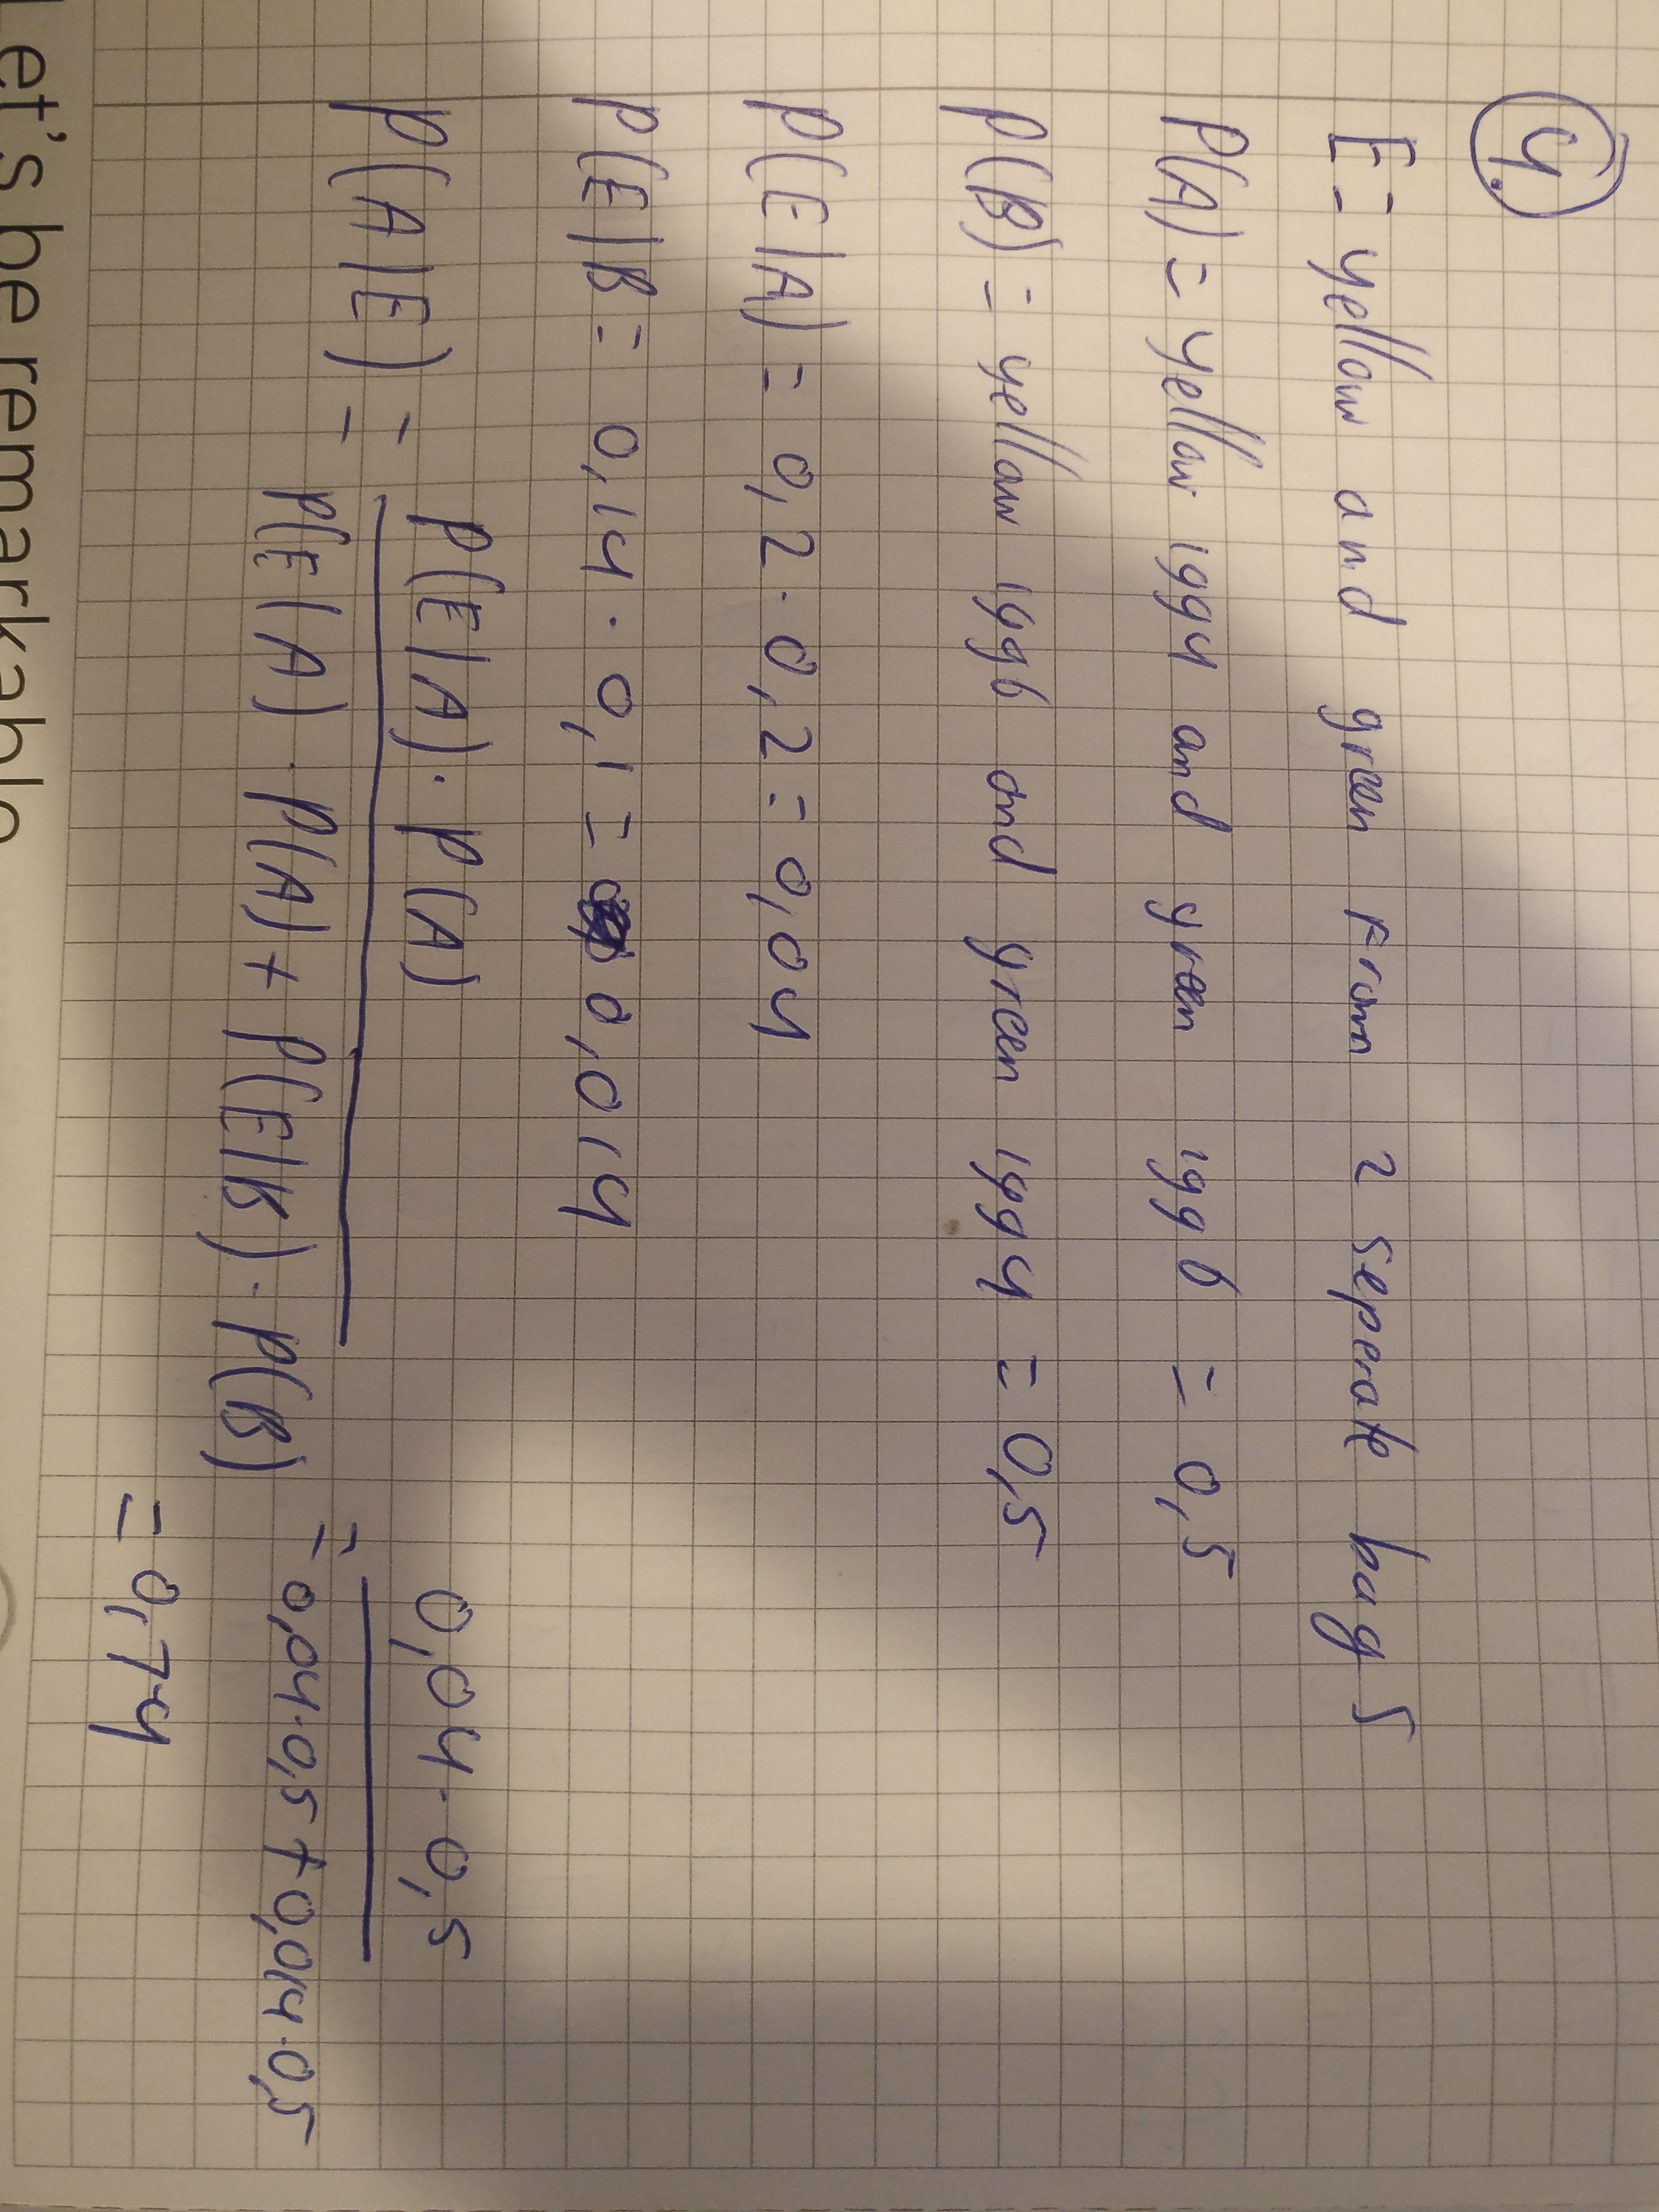 4.
E = yellow and green from 2 seperate bags
P(A) = yellow 1994 and green 1996 = 0,5
P(B) = yellow 1996 and green 1994 = 0,5
P(E|A) = 0,2 · 0,2 = 0,04
P(E|B = 0,14 · 0,1 = 0,014
P(A|E) = P(E|A) · P(A) / P(E|A) · P(A) + P(E|B) · P(B) = 0,04 · 0,5 / 0,04 · 0,5 + 0,014 · 0,5
= 0,74
Let's be remarkable